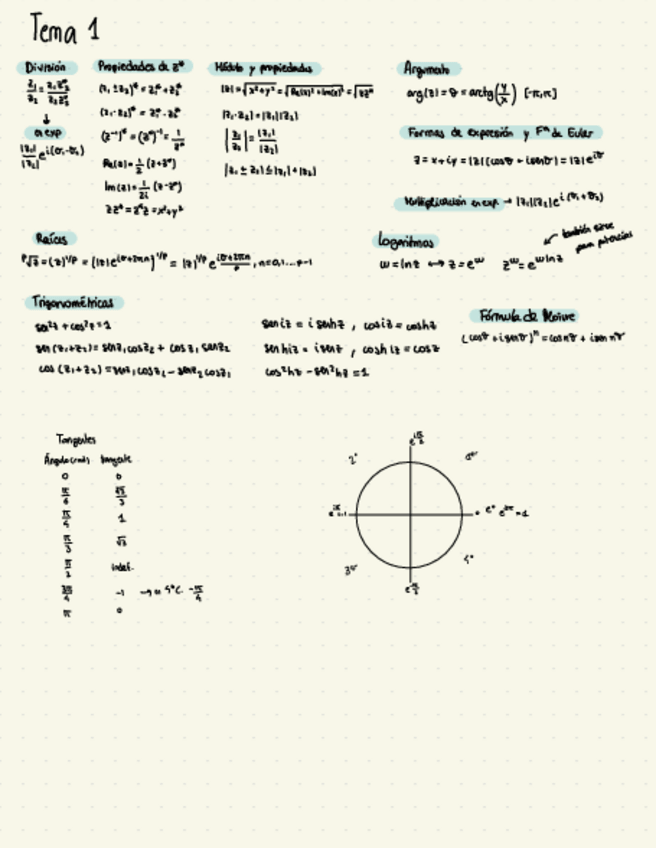 Tema 1
División
z₁/z₂ = z₁z₂*/z₂z₂*
↓
en exp
|z₁|/|z₂| e^i(θ₁-θ₂)
Propiedades de z*
(z₁ ± z₂)* = z₁* + z₂*
(z₁·z₂)* = z₁*·z₂*
(z⁻¹)* = (z*)⁻¹ = 1/z*
Re(z) = 1/2 (z+z*)
Im(z) = 1/2i (z-z*)
zz* = z*z = x²+y²
Módulo y propiedades
|z| = √x²+y² = √Re(z)²+Im(z)² = √zz*
|z₁·z₂| = |z₁||z₂|
|z₁/z₂| = |z₁|/|z₂|
|z₁ ± z₂| ≤ |z₁|+|z₂|
Argumento
arg(z) = θ = arctg(y/x) [-π,π]
Formas de expresión y Fᵐ de Euler
z = x+iy = |z|(cosθ + isenθ) = |z|e^iθ
Multiplicación en exp → |z₁||z₂|e^i(θ₁+θ₂)
Raíces
ᵖ√z = (z)^1/p = (|z|e^iθ+2πn)^1/p = |z|^1/p e^iθ+2πn/p, n=0,1...p-1
Logaritmos
w = ln z ↔ z = e^w z^w = e^w ln z
también sirve
para potencias
Trigonométricas
sen²z + cos²z = 1
sen(z₁+z₂) = senz₁cosz₂ + cosz₁senz₂
cos(z₁+z₂) = senz₁cosz₂ - senz₂cosz₁
seniz = i senhz, cosiz = coshz
senhiz = isenz, coshiz = cosz
cos²hz - sen²hz = 1
Fórmula de Moivre
(cosθ + isenθ)ⁿ = cosnθ + isennθ
Tangentes
Ángulo(rads) tangente
0 0
π/6 √3/3
π/4 1
π/3 √3
π/2 indef.
3π/4 -1 → 4ºC -π/4
π 0
e^iπ/2
2º
3º
4º